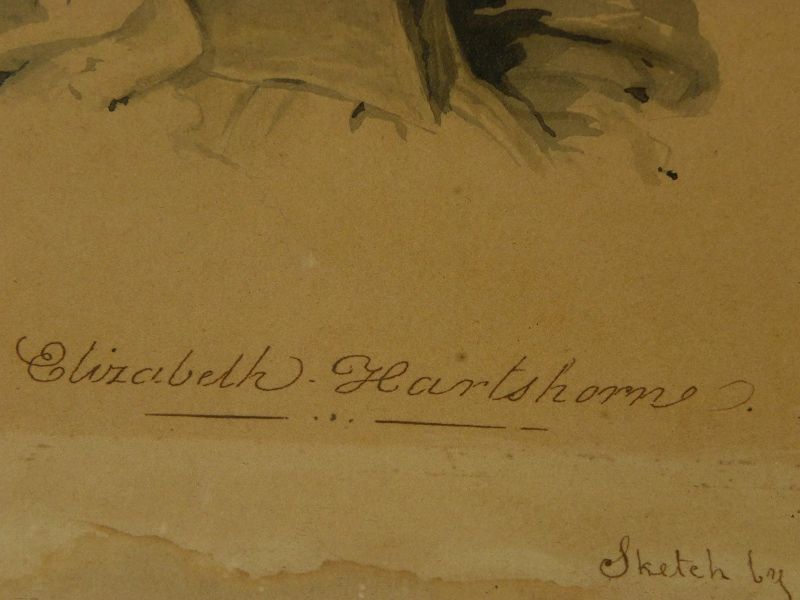 Elizabeth Hartshorne.
Sketch by